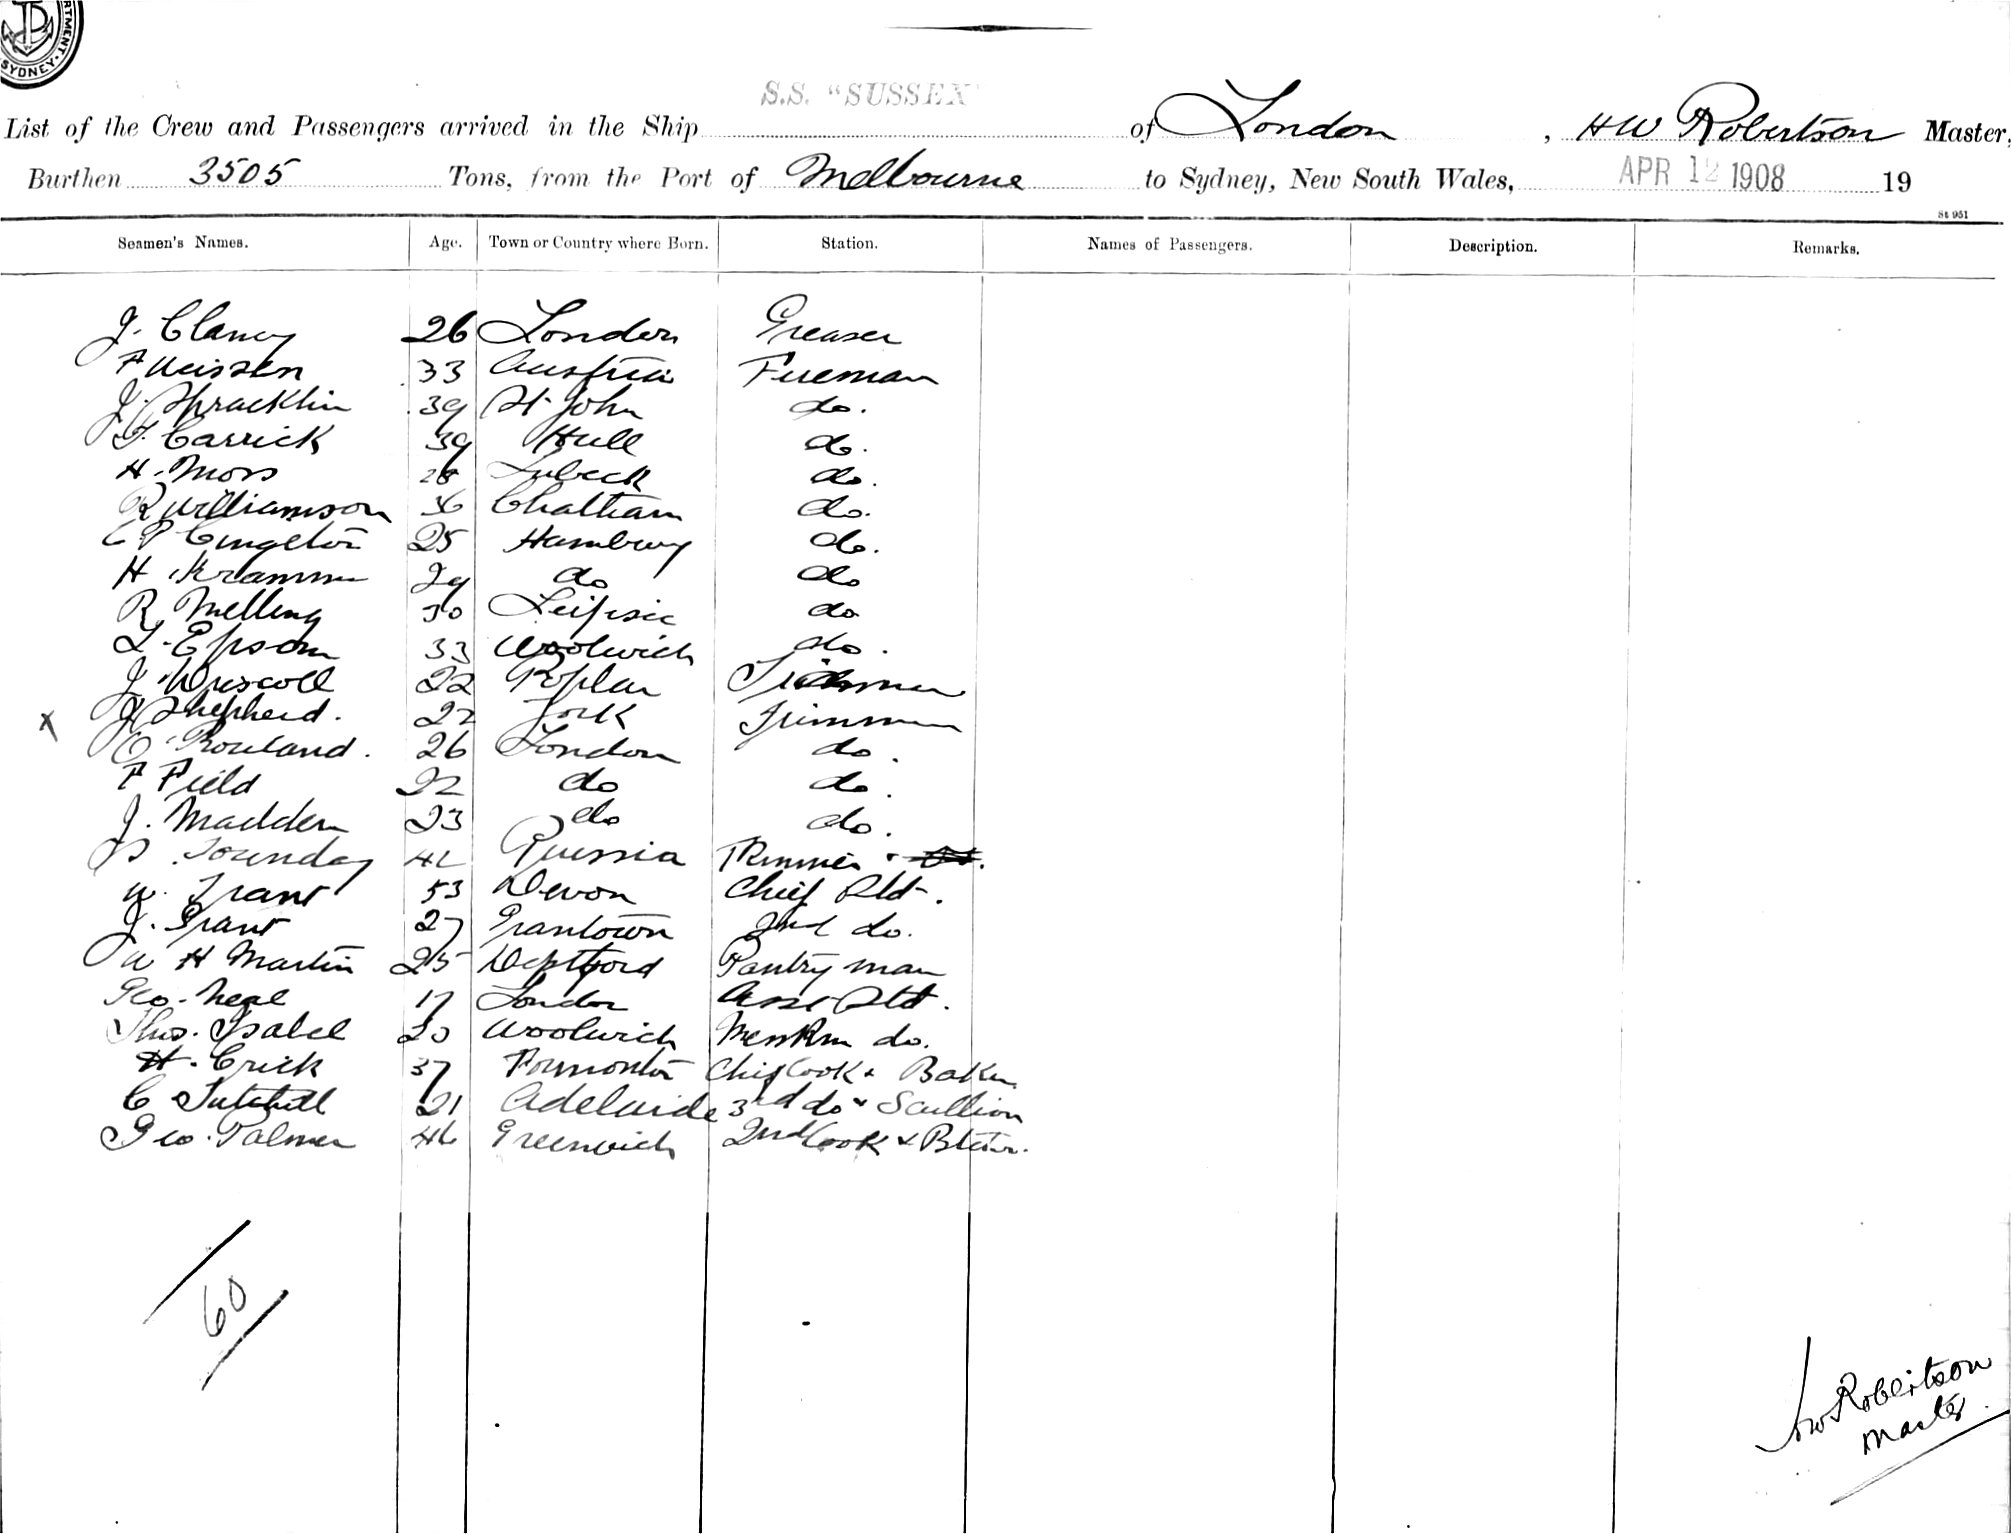 RTMENT. SYDNEY.
S.S. "SUSSEX"
List of the Crew and Passengers arrived in the Ship of London, H W Robertson Master,
Burthen 3505 Tons, from the Port of Melbourne to Sydney, New South Wales, APR 12 1908 19
St 951
Seamen's Names. Age. Town or Country where Born. Station. Names of Passengers. Description. Remarks.
J. Clancy 26 London Greaser
F 33 Austria Fireman
J. Spracklin 39 St John do.
T. Carrick 39 Hull do.
H. Mors 28 Lubeck do.
R Williamson 36 Chatham do.
C P Cingelton 25 Hamburg do.
H 29 do do
R Melling 30 Leipsic do
L. Epsom 33 Woolwich do.
J. Driscoll 22 Poplar
x J Shepherd. 22 York Trimmer
O Rowland. 26 London do.
F Field 22 do do.
J. Madden 23 do do.
J 42 Russia Trimmer
W. Trant 53 Devon Chief Std.
J. Grant 27 Grantown 2nd do.
W H Martin 25 Deptford Pantry man
Geo. Neal 17 London Asst Std.
Thos. Isabel 23 Woolwich Messrm do.
H. Crick 37 Chief Cook & Baker
C 21 Adelaide 3rd do & Scullion
Geo. Palmer 46 Greenwich 2nd Cook & Btcher.
60
HW Robertson
Master